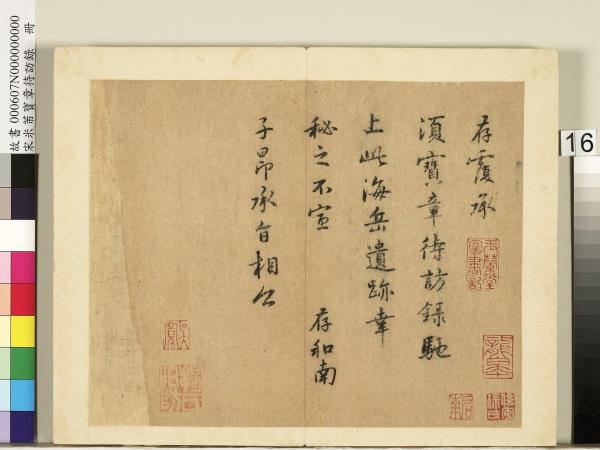 存霞承
須寶章待訪錄馳
上此海岳遺跡幸
秘之不宣 存和南
子昂承旨相公
16
故書 000607N000000000
宋米芾寶章待訪錄 冊